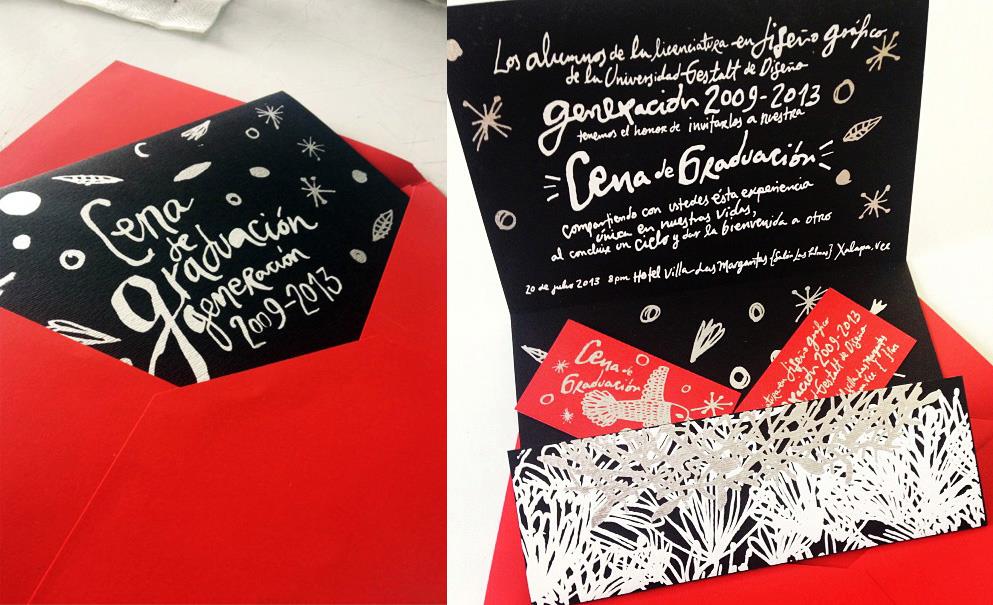 Cena
de
graduación
generación
2009-2013
Los alumnos de la licenciatura en diseño gráfico
de la Universidad Gestalt de Diseño
generación 2009-2013
tenemos el honor de invitarlos a nuestra
Cena de Graduación
compartiendo con ustedes ésta experiencia
única en nuestras vidas,
al concluir un ciclo y dar la bienvenida a otro
20 de julio 2013 8pm Hotel Villa Las Margaritas (Salón Las Palmas) Xalapa, Ver
Cena de
Graduación
en diseño gráfico
generación 2009-2013
Gestalt de Diseño
Villa Las Margaritas